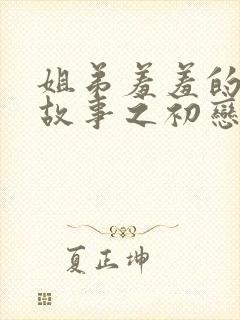 姐弟羞羞的
故事之初戀
夏正坤